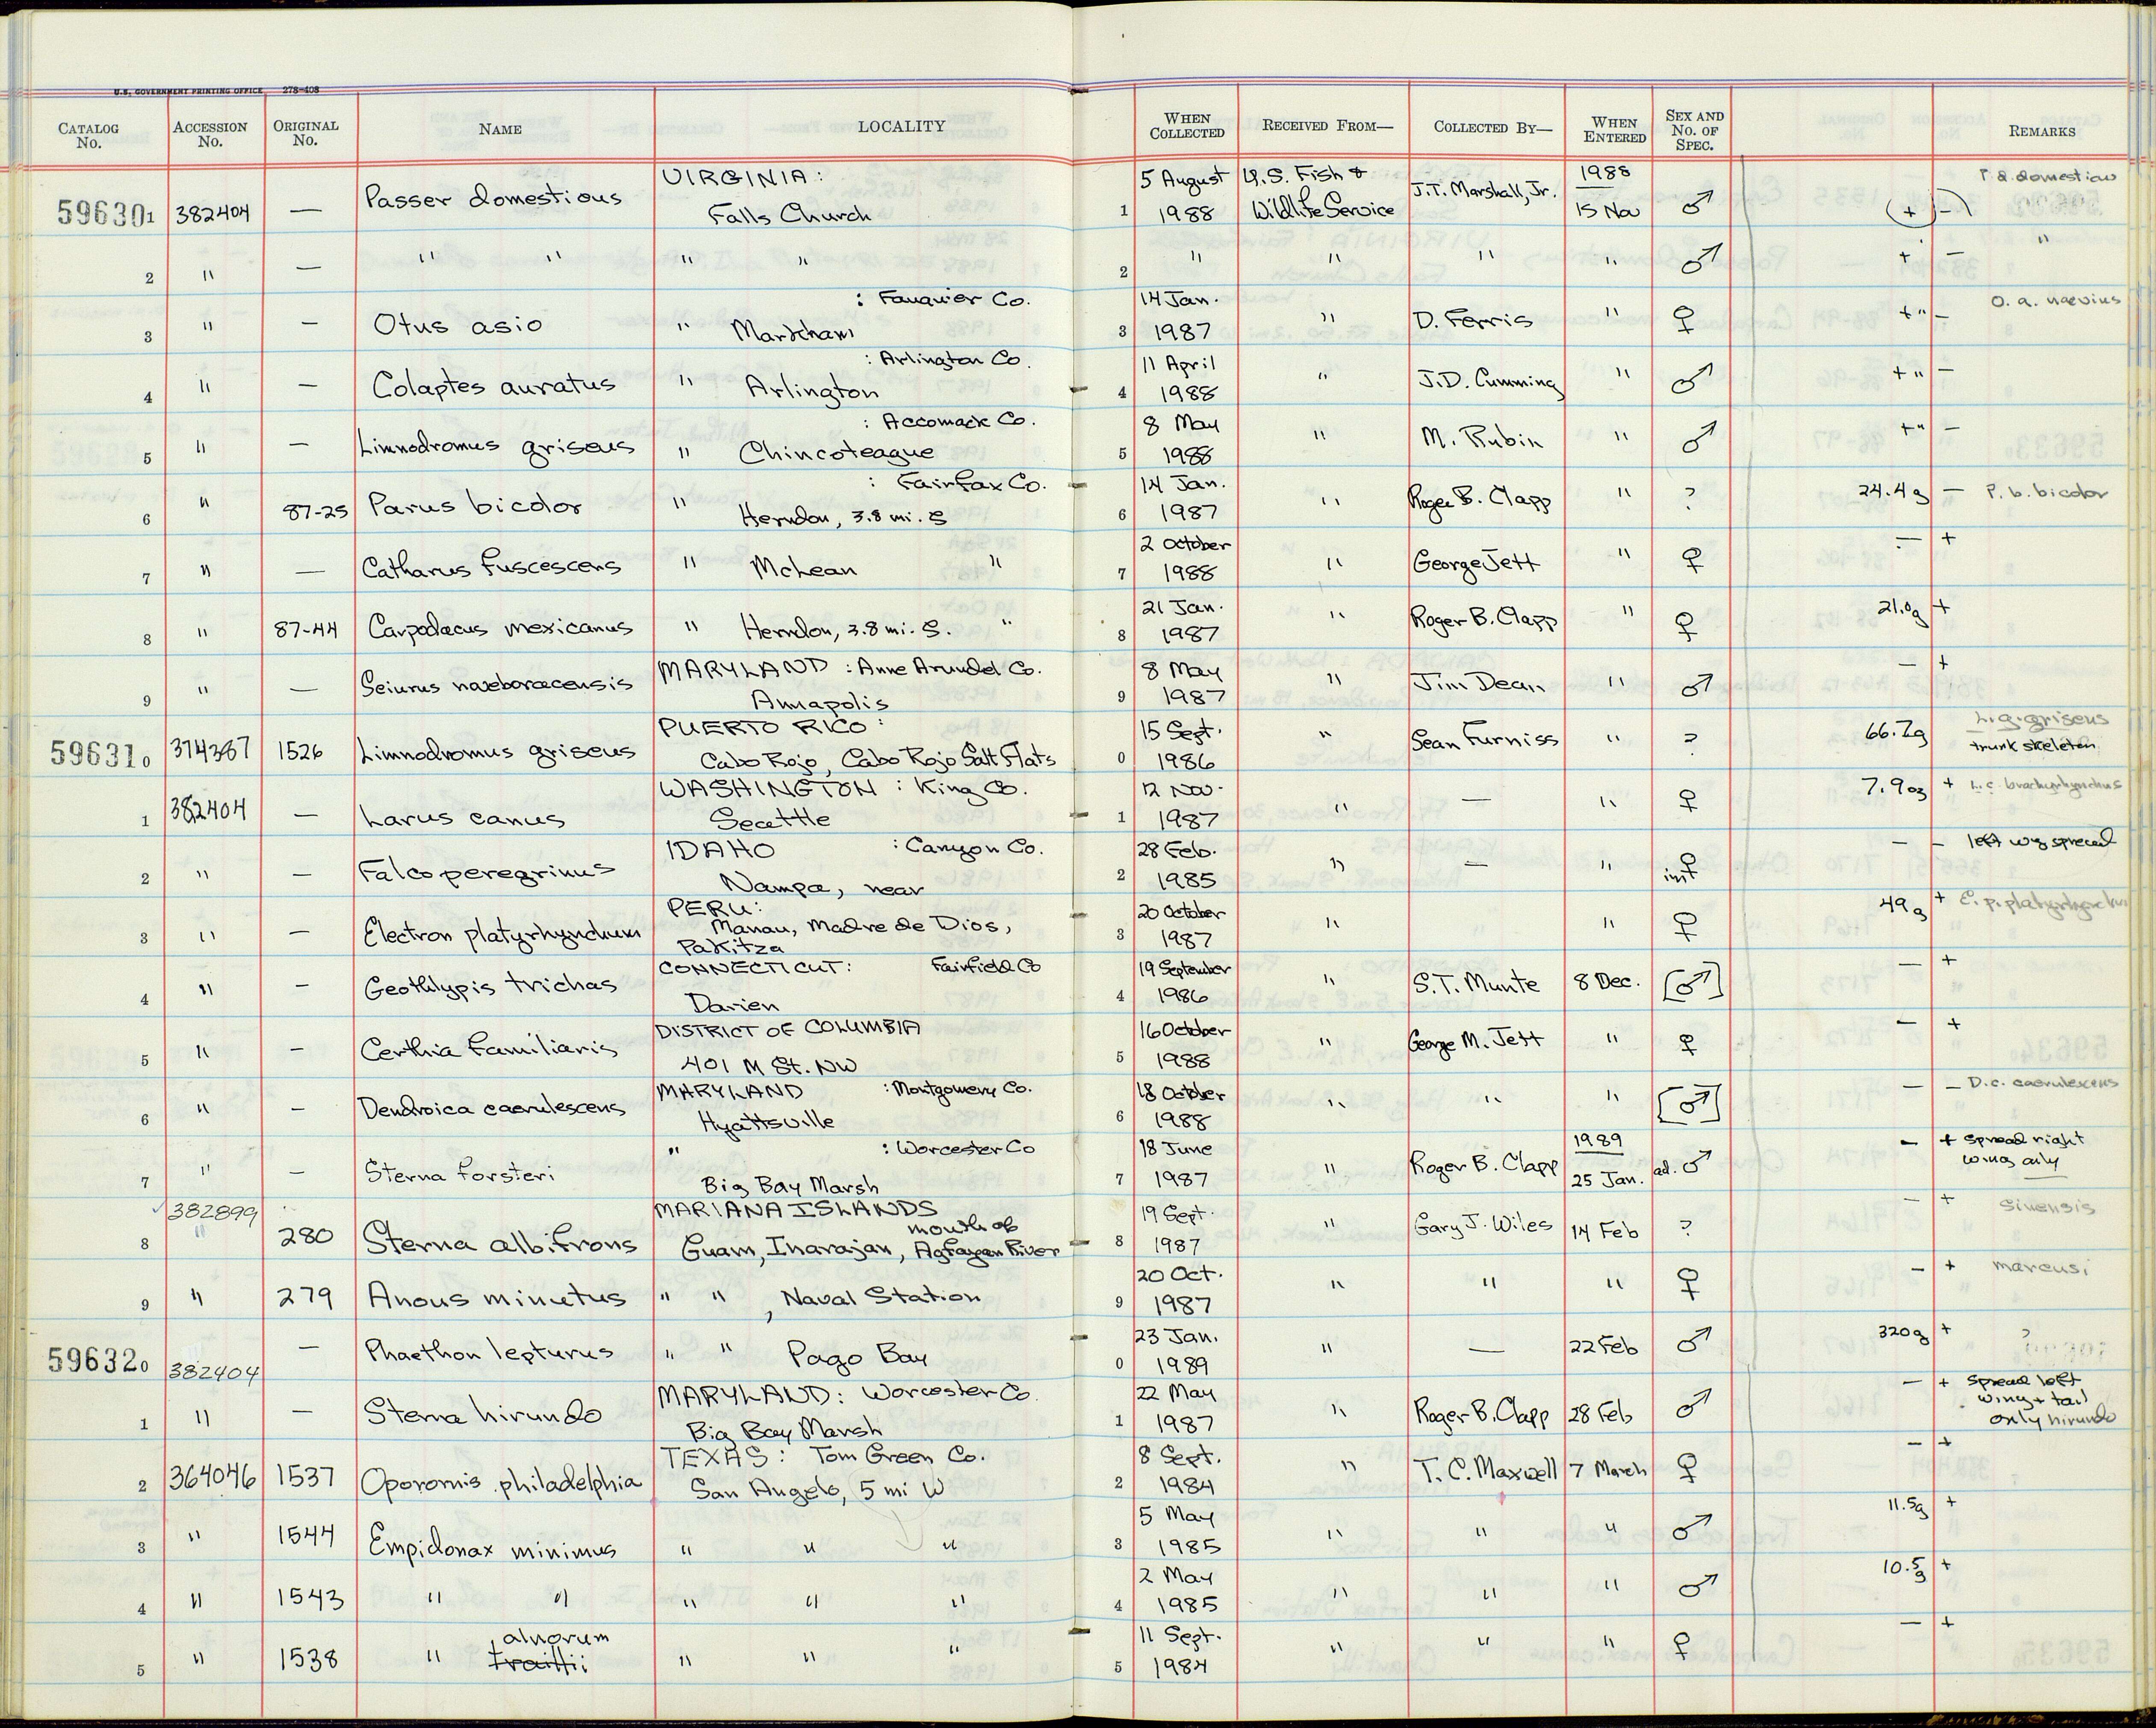 U.S. GOVERNMENT PRINTING OFFICE 278-408
CATALOG No. ACCESSION No. ORIGINAL No. NAME LOCALITY WHEN COLLECTED RECEIVED FROM— COLLECTED BY— WHEN ENTERED SEX AND No. OF SPEC. REMARKS
59630 1 382404 — Passer domesticus VIRGINIA: Falls Church 1 5 August 1988 U.S. Fish & Wildlife Service J.T. Marshall, Jr. 1988 15 Nov ♂ (+) – P. d. domesticus
2 " — " " " " 2 " " " " ♂ + – "
3 " — Otus asio " : Fauquier Co. Markham 3 14 Jan. 1987 " D. Ferris " ♀ +" – O. a. naevius
4 " — Colaptes auratus " : Arlington Co. Arlington 4 11 April 1988 " J.D. Cumming " ♂ +" –
5 " — Limnodromus griseus " : Accomack Co. Chincoteague 5 8 May 1988 " M. Rubin " ♂ +" –
6 " 87-25 Parus bicolor " : Fairfax Co. Herndon, 3.8 mi. S 6 14 Jan. 1987 " Roger B. Clapp " ? 24.4g – P. b. bicolor
7 " — Catharus fuscescens " McLean " 7 2 October 1988 " George Jett " ♀ — +
8 " 87-44 Carpodacus mexicanus " Herndon, 3.8 mi. S. " 8 21 Jan. 1987 " Roger B. Clapp " ♀ 21.0g +
9 " — Seiurus noveboracensis MARYLAND : Anne Arundel Co. Annapolis 9 8 May 1987 " Jim Dean " ♂ — +
59631 0 374387 1526 Limnodromus griseus PUERTO RICO: Cabo Rojo, Cabo Rojo Salt Flats 0 15 Sept. 1986 " Sean Furniss " ? 66.7g L. g. griseus trunk skeleton
1 382404 — Larus canus WASHINGTON : King Co. Seattle 1 12 Nov. 1987 " — " ♀ 7.9oz + L. c. brachyrhynchus
2 " — Falco peregrinus IDAHO : Canyon Co. Nampa, near 2 28 Feb. 1985 " — " ♀ im — – left wg spread
3 " — Electron platyrhynchum PERU: Manau, Madre de Dios, Pakitza 3 20 October 1987 " " ♀ 49g + E. p. platyrhynchum
4 " — Geothlypis trichas CONNECTICUT: Fairfield Co Darien 4 19 September 1986 " S.T. Munte 8 Dec. [♂] — +
5 " — Certhia familiaris DISTRICT OF COLUMBIA 401 M St. NW 5 16 October 1988 " George M. Jett " ♀ — +
6 " — Dendroica caerulescens MARYLAND : Montgomery Co. Hyattsville 6 18 October 1988 " " " [♂] — – D. c. caerulescens
7 " — Sterna forsteri " : Worcester Co Big Bay Marsh 7 18 June 1987 " Roger B. Clapp 1989 25 Jan. ad. ♂ — + spread right wing only
8 382899 " 280 Sterna albifrons MARIANA ISLANDS Guam, Inarajan, mouth of Agfayan River 8 19 Sept. 1987 " Gary J. Wiles 14 Feb ? — + sinensis
9 " 279 Anous minutus " " , Naval Station 9 20 Oct. 1987 " " " ♀ — + marcusi
59632 0 382404 — Phaethon lepturus " " Pago Bay 0 23 Jan. 1989 " — 22 Feb ♂ 320g + ?
1 " — Sterna hirundo MARYLAND: Worcester Co. Big Bay Marsh 1 22 May 1987 " Roger B. Clapp 28 Feb ♂ — + spread left wing + tail only hirundo
2 364046 1537 Oporornis philadelphia TEXAS: Tom Green Co. San Angelo, 5 mi W 2 8 Sept. 1984 " T. C. Maxwell 7 March ♀ — +
3 " 1544 Empidonax minimus " " " 3 5 May 1985 " " " ♂ 11.5g +
4 " 1543 " " " " " 4 2 May 1985 " " " ♂ 10.5g +
5 " 1538 " alnorum traillii " " " 5 11 Sept. 1984 " " " ♀ — +